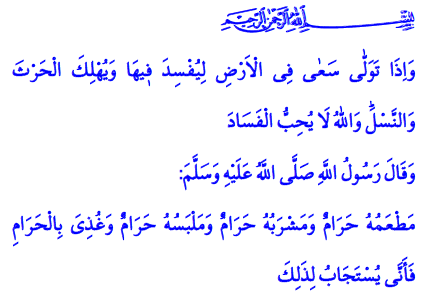 بِسْمِ اللهِ الرَّحْمٰنِ الرَّحِيمِ
وَاِذَا تَوَلّٰى سَعٰى فِى الْاَرْضِ لِيُفْسِدَ فِيهَا وَيُهْلِكَ الْحَرْثَ
وَالنَّسْلَۜ وَاللهُ لَا يُحِبُّ الْفَسَادَ
وَقَالَ رَسُولُ اللَّهِ صَلَّى اللَّهُ عَلَيْهِ وَسَلَّمَ:
مَطْعَمُهُ حَرَامٌ وَمَشْرَبُهُ حَرَامٌ وَمَلْبَسُهُ حَرَامٌ وَغُذِىَ بِالْحَرَامِ
فَأَنَّى يُسْتَجَابُ لِذَلِكَ